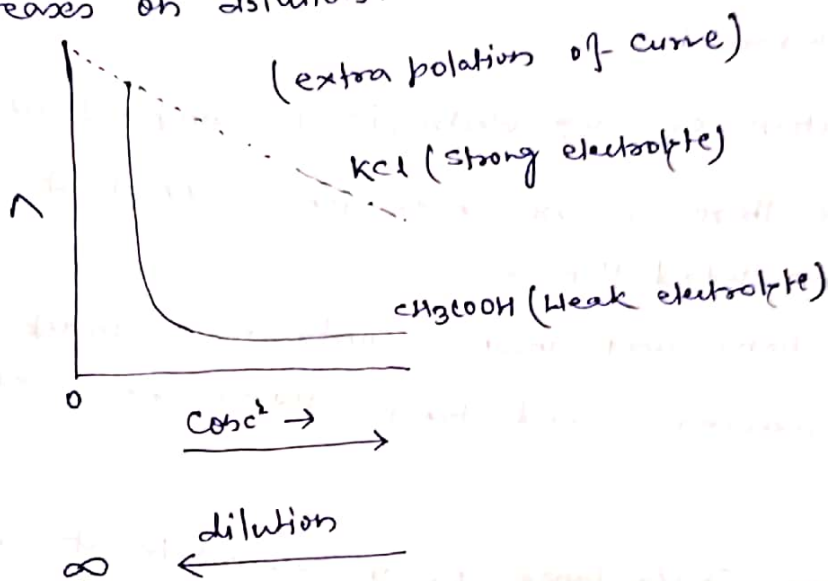 eases on
(extra polation of curve)
KCl (strong electrolyte)
Λ
CH3COOH (Weak electrolyte)
0
Conc →
dilution
∞